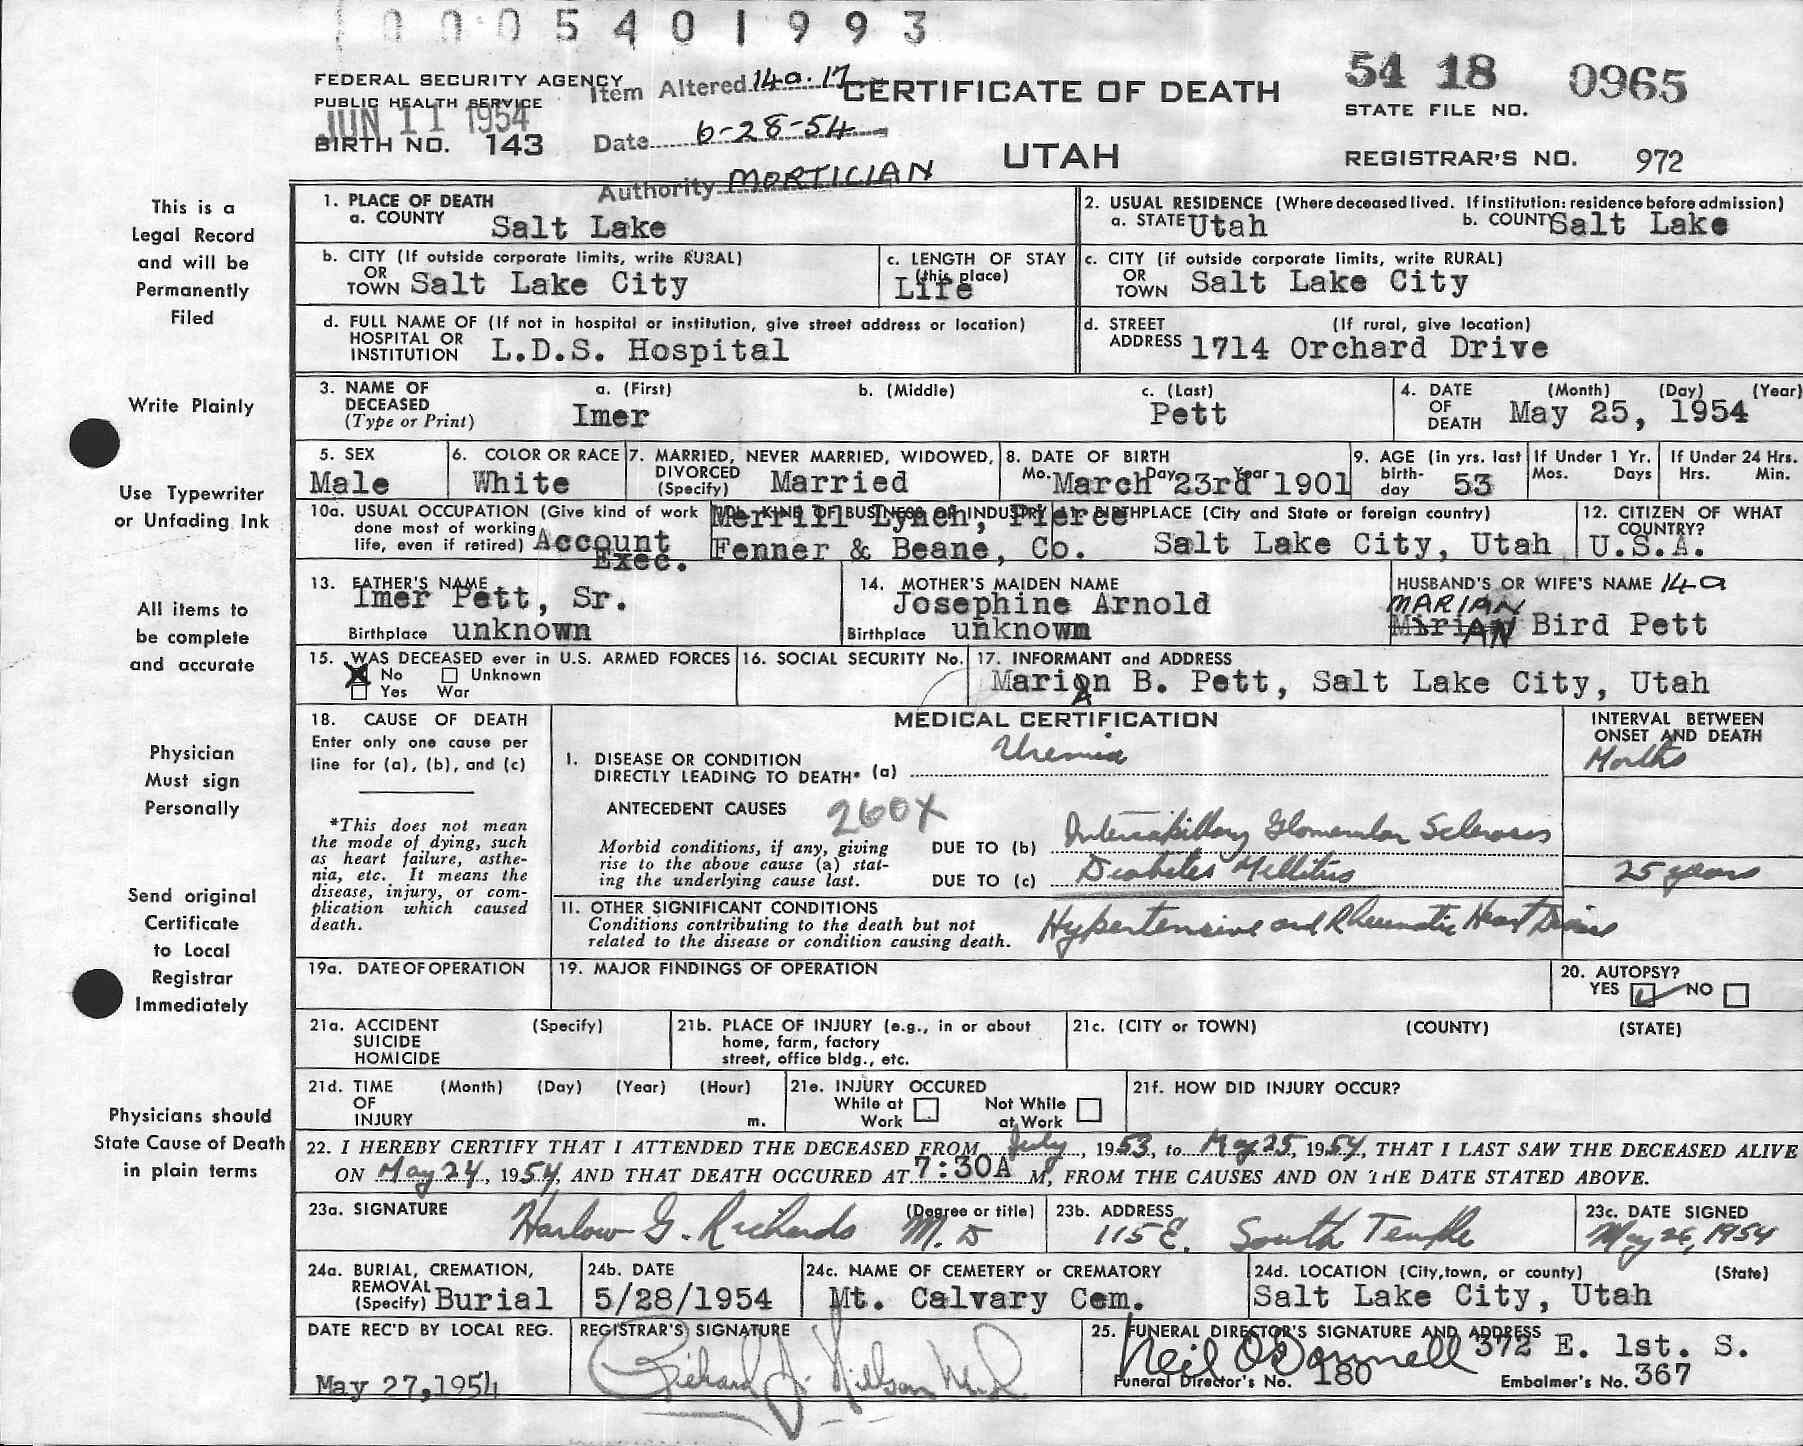 0005401993
FEDERAL SECURITY AGENCY
PUBLIC HEALTH SERVICE
JUN 11 1954
BIRTH NO. 143
Item Altered 14a. 17
Date 6-28-54
Authority MORTICIAN
CERTIFICATE OF DEATH
UTAH
54 18 0965
STATE FILE NO.
REGISTRAR'S NO. 972
This is a
Legal Record
and will be
Permanently
Filed
Write Plainly
Use Typewriter
or Unfading Ink
All items to
be complete
and accurate
Physician
Must sign
Personally
Send original
Certificate
to Local
Registrar
Immediately
Physicians should
State Cause of Death
in plain terms
1. PLACE OF DEATH
a. COUNTY Salt Lake
2. USUAL RESIDENCE (Where deceased lived. If institution: residence before admission)
a. STATE Utah b. COUNTY Salt Lake
b. CITY (If outside corporate limits, write RURAL)
OR
TOWN Salt Lake City
c. LENGTH OF STAY
(this place)
Life
c. CITY (if outside corporate limits, write RURAL)
OR
TOWN Salt Lake City
d. FULL NAME OF (If not in hospital or institution, give street address or location)
HOSPITAL OR
INSTITUTION L.D.S. Hospital
d. STREET (If rural, give location)
ADDRESS 1714 Orchard Drive
3. NAME OF DECEASED
(Type or Print)
a. (First) b. (Middle) c. (Last)
Imer Pett
4. DATE OF DEATH (Month) (Day) (Year)
May 25, 1954
5. SEX
Male
6. COLOR OR RACE
White
7. MARRIED, NEVER MARRIED, WIDOWED,
DIVORCED
(Specify) Married
8. DATE OF BIRTH
Mo. March Day 23rd Year 1901
9. AGE (in yrs. last
birth-
day 53
If Under 1 Yr.
Mos. Days
If Under 24 Hrs.
Hrs. Min.
10a. USUAL OCCUPATION (Give kind of work
done most of working
life, even if retired) Account
Exec.
10b. KIND OF BUSINESS OR INDUSTRY
Merrill Lynch, Pierce
Fenner & Beane, Co.
11. BIRTHPLACE (City and State or foreign country)
Salt Lake City, Utah
12. CITIZEN OF WHAT
COUNTRY?
U.S.A.
13. FATHER'S NAME
Imer Pett, Sr.
Birthplace unknown
14. MOTHER'S MAIDEN NAME
Josephine Arnold
Birthplace unknown
HUSBAND'S OR WIFE'S NAME 14-a
MARIAN
Mirian AN Bird Pett
15. WAS DECEASED ever in U.S. ARMED FORCES
X No Unknown
Yes War
16. SOCIAL SECURITY No.
17. INFORMANT and ADDRESS
Marian B. Pett, Salt Lake City, Utah
A
18. CAUSE OF DEATH
Enter only one cause per
line for (a), (b), and (c)
*This does not mean
the mode of dying, such
as heart failure, asthe-
nia, etc. It means the
disease, injury, or com-
plication which caused
death.
MEDICAL CERTIFICATION
INTERVAL BETWEEN
ONSET AND DEATH
I. DISEASE OR CONDITION
DIRECTLY LEADING TO DEATH* (a) Uremia
Months
ANTECEDENT CAUSES 260X
Morbid conditions, if any, giving
rise to the above cause (a) stat-
ing the underlying cause last.
DUE TO (b) Intercapillary Glomerular Sclerosis
DUE TO (c) Diabetes Mellitus
25 years
II. OTHER SIGNIFICANT CONDITIONS
Conditions contributing to the death but not
related to the disease or condition causing death.
Hypertensive and Rheumatic Heart Disease
19a. DATE OF OPERATION
19. MAJOR FINDINGS OF OPERATION
20. AUTOPSY?
YES ✓ NO
21a. ACCIDENT (Specify)
SUICIDE
HOMICIDE
21b. PLACE OF INJURY (e.g., in or about
home, farm, factory
street, office bldg., etc.
21c. (CITY or TOWN) (COUNTY) (STATE)
21d. TIME (Month) (Day) (Year) (Hour)
OF
INJURY m.
21e. INJURY OCCURED
While at Work Not While at Work
21f. HOW DID INJURY OCCUR?
22. I HEREBY CERTIFY THAT I ATTENDED THE DECEASED FROM July, 1953, to May 25, 1954, THAT I LAST SAW THE DECEASED ALIVE
ON May 24, 1954, AND THAT DEATH OCCURED AT 7:30A M, FROM THE CAUSES AND ON THE DATE STATED ABOVE.
23a. SIGNATURE (Degree or title)
Harlow G. Richards M.D
23b. ADDRESS
115 E. South Temple
23c. DATE SIGNED
May 26, 1954
24a. BURIAL, CREMATION,
REMOVAL
(Specify) Burial
24b. DATE
5/28/1954
24c. NAME OF CEMETERY or CREMATORY
Mt. Calvary Cem.
24d. LOCATION (City, town, or county) (State)
Salt Lake City, Utah
DATE REC'D BY LOCAL REG.
May 27, 1954
REGISTRAR'S SIGNATURE
Richard J.
25. FUNERAL DIRECTOR'S SIGNATURE AND ADDRESS
Neil O'Donnell 372 E. 1st. S.
Funeral Director's No. 180 Embalmer's No. 367